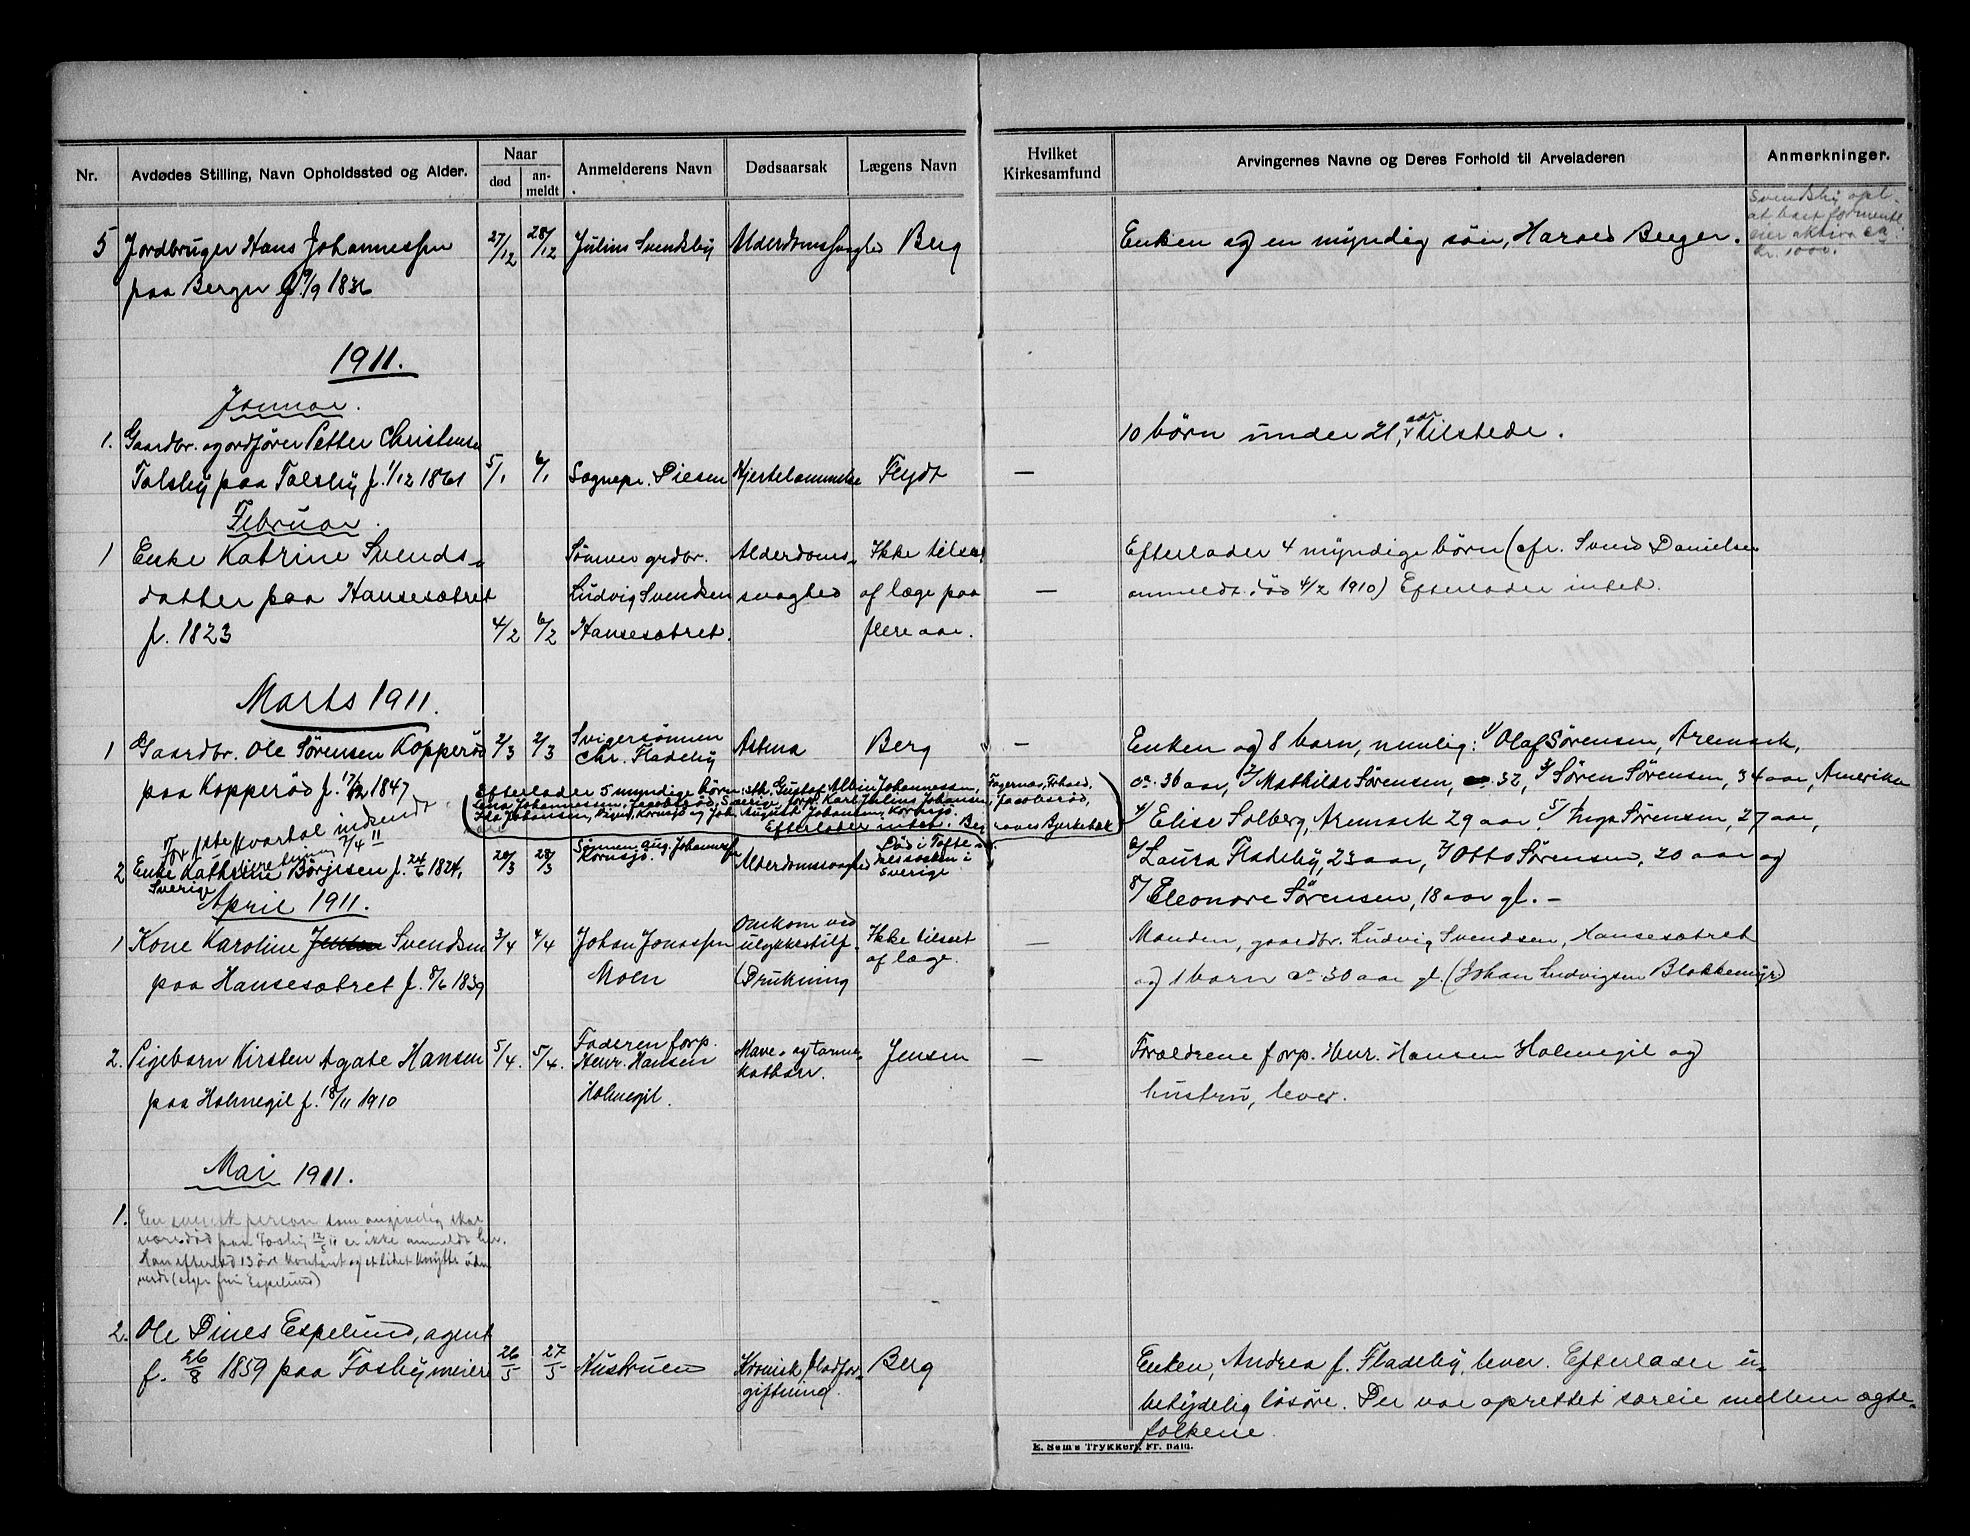 Nr.
Avdødes Stilling, Navn Opholdssted og Alder.
Naar
død
an-
meldt
Anmelderens Navn
Dødsaarsak
Lægens Navn
Hvilket
Kirkesamfund
Arvingernes Navne og Deres Forhold til Arveladeren
Anmerkninger.
5 Jordbruger Hans Johannessen 27/12 28/12 Julius Svendsby Alderdomssvaghed Berg Enken og en myndig søn, Harald Berger.
paa Berger f. 9/9 1836
Svendsby opl.
at bost formentl.
eier aktiva ca
kr. 1000.
1911.
Januar.
1. Gaardbr. og ordfører Petter Christensen 10 børn under 21 aar, tilstede.
Tolsby paa Tolsby f. 1/12 1861 5/1 6/1 Sognepr. Diesen Hjertelammelse Flydt —
Februar.
1 Enke Katrine Svends- Sønnen grdbr. Alderdoms- Ikke tilseet Efterlader 4 myndige børn (cfr. Svend Danielsen
datter paa Hansesætret Ludvig Svendsen svaghed af læge paa — anmeldt død 4/2 1910) Efterlader intet.
f. 1823 4/2 6/2 Hansesætret. flere aar.
Marts 1911.
1 Gaardbr. Ole Sørensen Kopperød 2/3 2/3 Svigersønnen Chr. Fladeby Astma Berg — Enken og 8 barn, nemlig: 1/ Olaf Sørensen, Aremark,
paa Kopperød f. 17/12 1847
ca. 36 aar, 2/ Mathilde Sørensen, 32, 3/ Søren Sørensen, 34 aar, Amerika
4/ Elise Solberg, Aremark 29 aar, 5/ Inga Sørensen, 27 aar,
6/ Laura Fladeby, 23 aar, 7/ Otto Sørensen, 20 aar og
8/ Eleonore Sørensen, 18 aar gl. —
Efterlader 5 myndige børn: Gustaf Albin Johannessen, Fagernæs, Fr.hald,
Lena Johannessen, Jacobsrød, Sverige, forp. Karl Julius Johansen, Jacobsrød,
Ida Johansen, Kornsjø og Joh. August Johansen, Kornsjø.
Efterlader intet.
For 1ste kvartal indsendt
indberetning 7/4 11
2 Enke Kathrine Börjesen f. 24/6 1824, 20/3 28/3 Sønnen Aug. Johannessen Kornsjø. Alderdomssvaghed Død i Töftedalssocken i Sverige
Sverige
April 1911.
1 Kone Karoline Jensen Svendsen 3/4 4/4 Johan Jonassen Omkom ved Ikke tilseet — Manden, gaardbr. Ludvig Svendsen, Hansesætret
paa Hansesætret f. 8/6 1839 Moen ulykkestilf. af læge. og 1 barn ca 30 aar gl. (Johan Ludvigsen Blokkemyr.)
(Drukning
2. Pigebarn Kirsten Agate Hansen 5/4. 5/4. Faderen forp. Mave- og tarm- Jensen — Forældrene forp. Henr. Hansen Holmegil og
paa Holmegil f. 18/11 1910 Henr. Hansen katharr. hustru, lever.
Holmegil.
Mai 1911.
1. En svensk person som angivelig skal
være død paa Fosby 12/5 11 er ikke anmeldt her.
Han efterlod 13 öre kontant og et lidet knytte uden
verdi (siger fru Espelund)
2. Ole Dines Espelund, agent
f. 26/8 1859 paa Fosby meieri 26/5 27/5 Hustruen Kronisk blodfor- Berg Enken, Andrea f. Fladeby, lever. Efterlader u-
giftning. betydelig løsøre. Der var oprettet særeie mellem ægte-
folkene.
E. Sem's Trykkeri, Fr.hald.